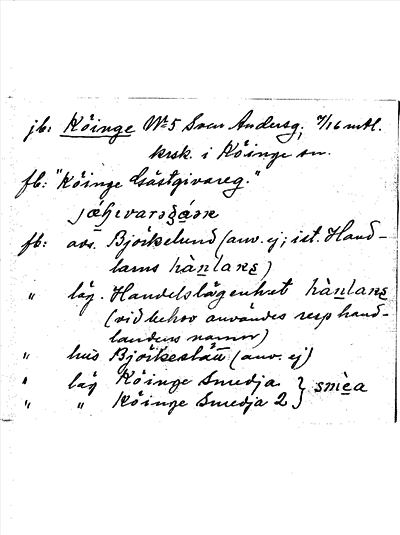 jb: Köinge No 5 Sven Andersg. 7/16 mtl.
krsk. i Köinge sn.
fb: "Köinge Gästgivareg."
fb: avs. Björkelund (anv. ej; ist. Hand-
larns hànlans)
" läg. Handelslägenhet hànlans
(vid behov användes resp hand-
landens namn)
" hus Björkeslätt (anv. ej)
" läg Köinge Smedja } smèa
" " Köinge Smedja 2 }